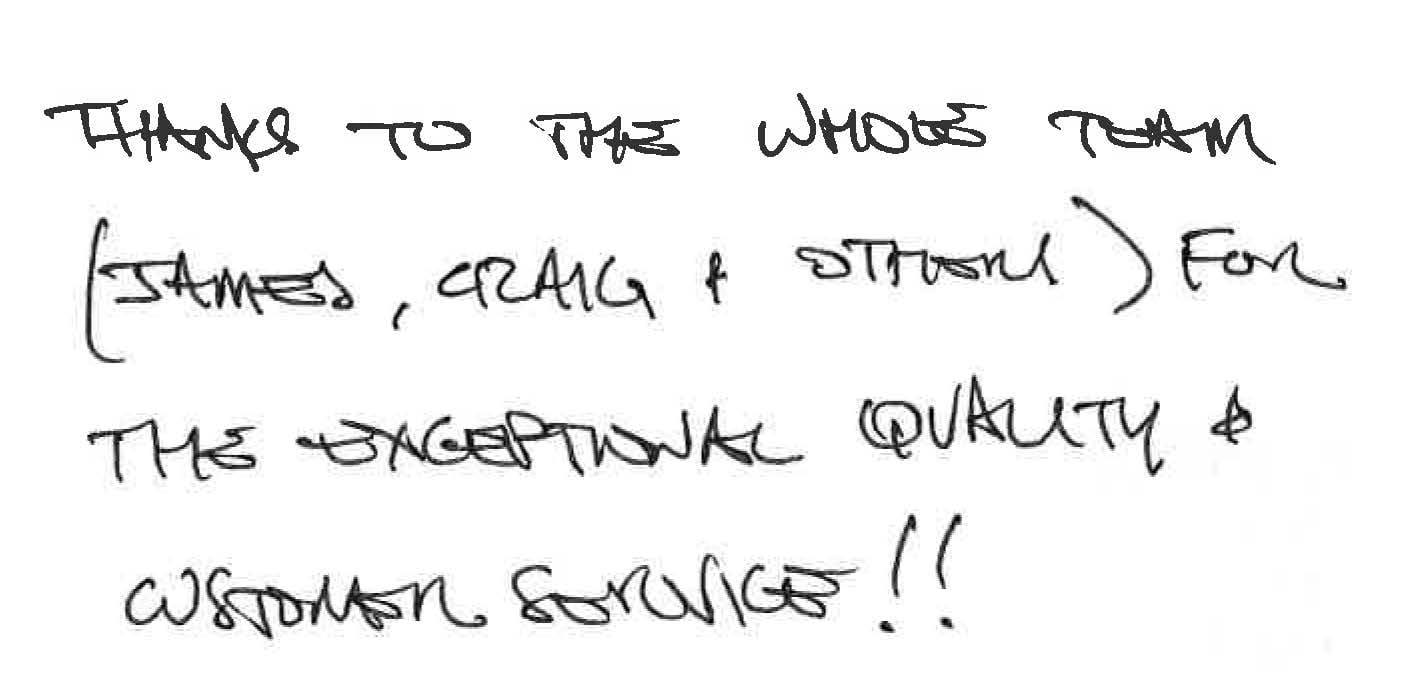 THANKS TO THE WHOLE TEAM
(JAMES, CRAIG & OTHERS) FOR
THE EXCEPTIONAL QUALITY &
CUSTOMER SERVICE!!